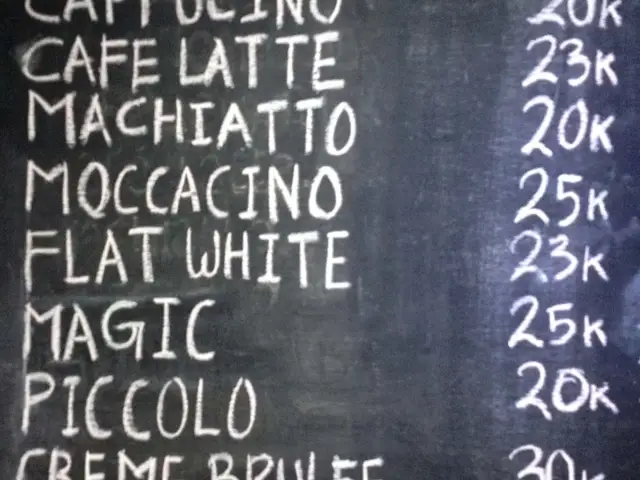 CAPPUCINO 20K
CAFE LATTE 23K
MACHIATTO 20K
MOCCACINO 25K
FLAT WHITE 23K
MAGIC 25K
PICCOLO 20K
CREME BRULEE 30K